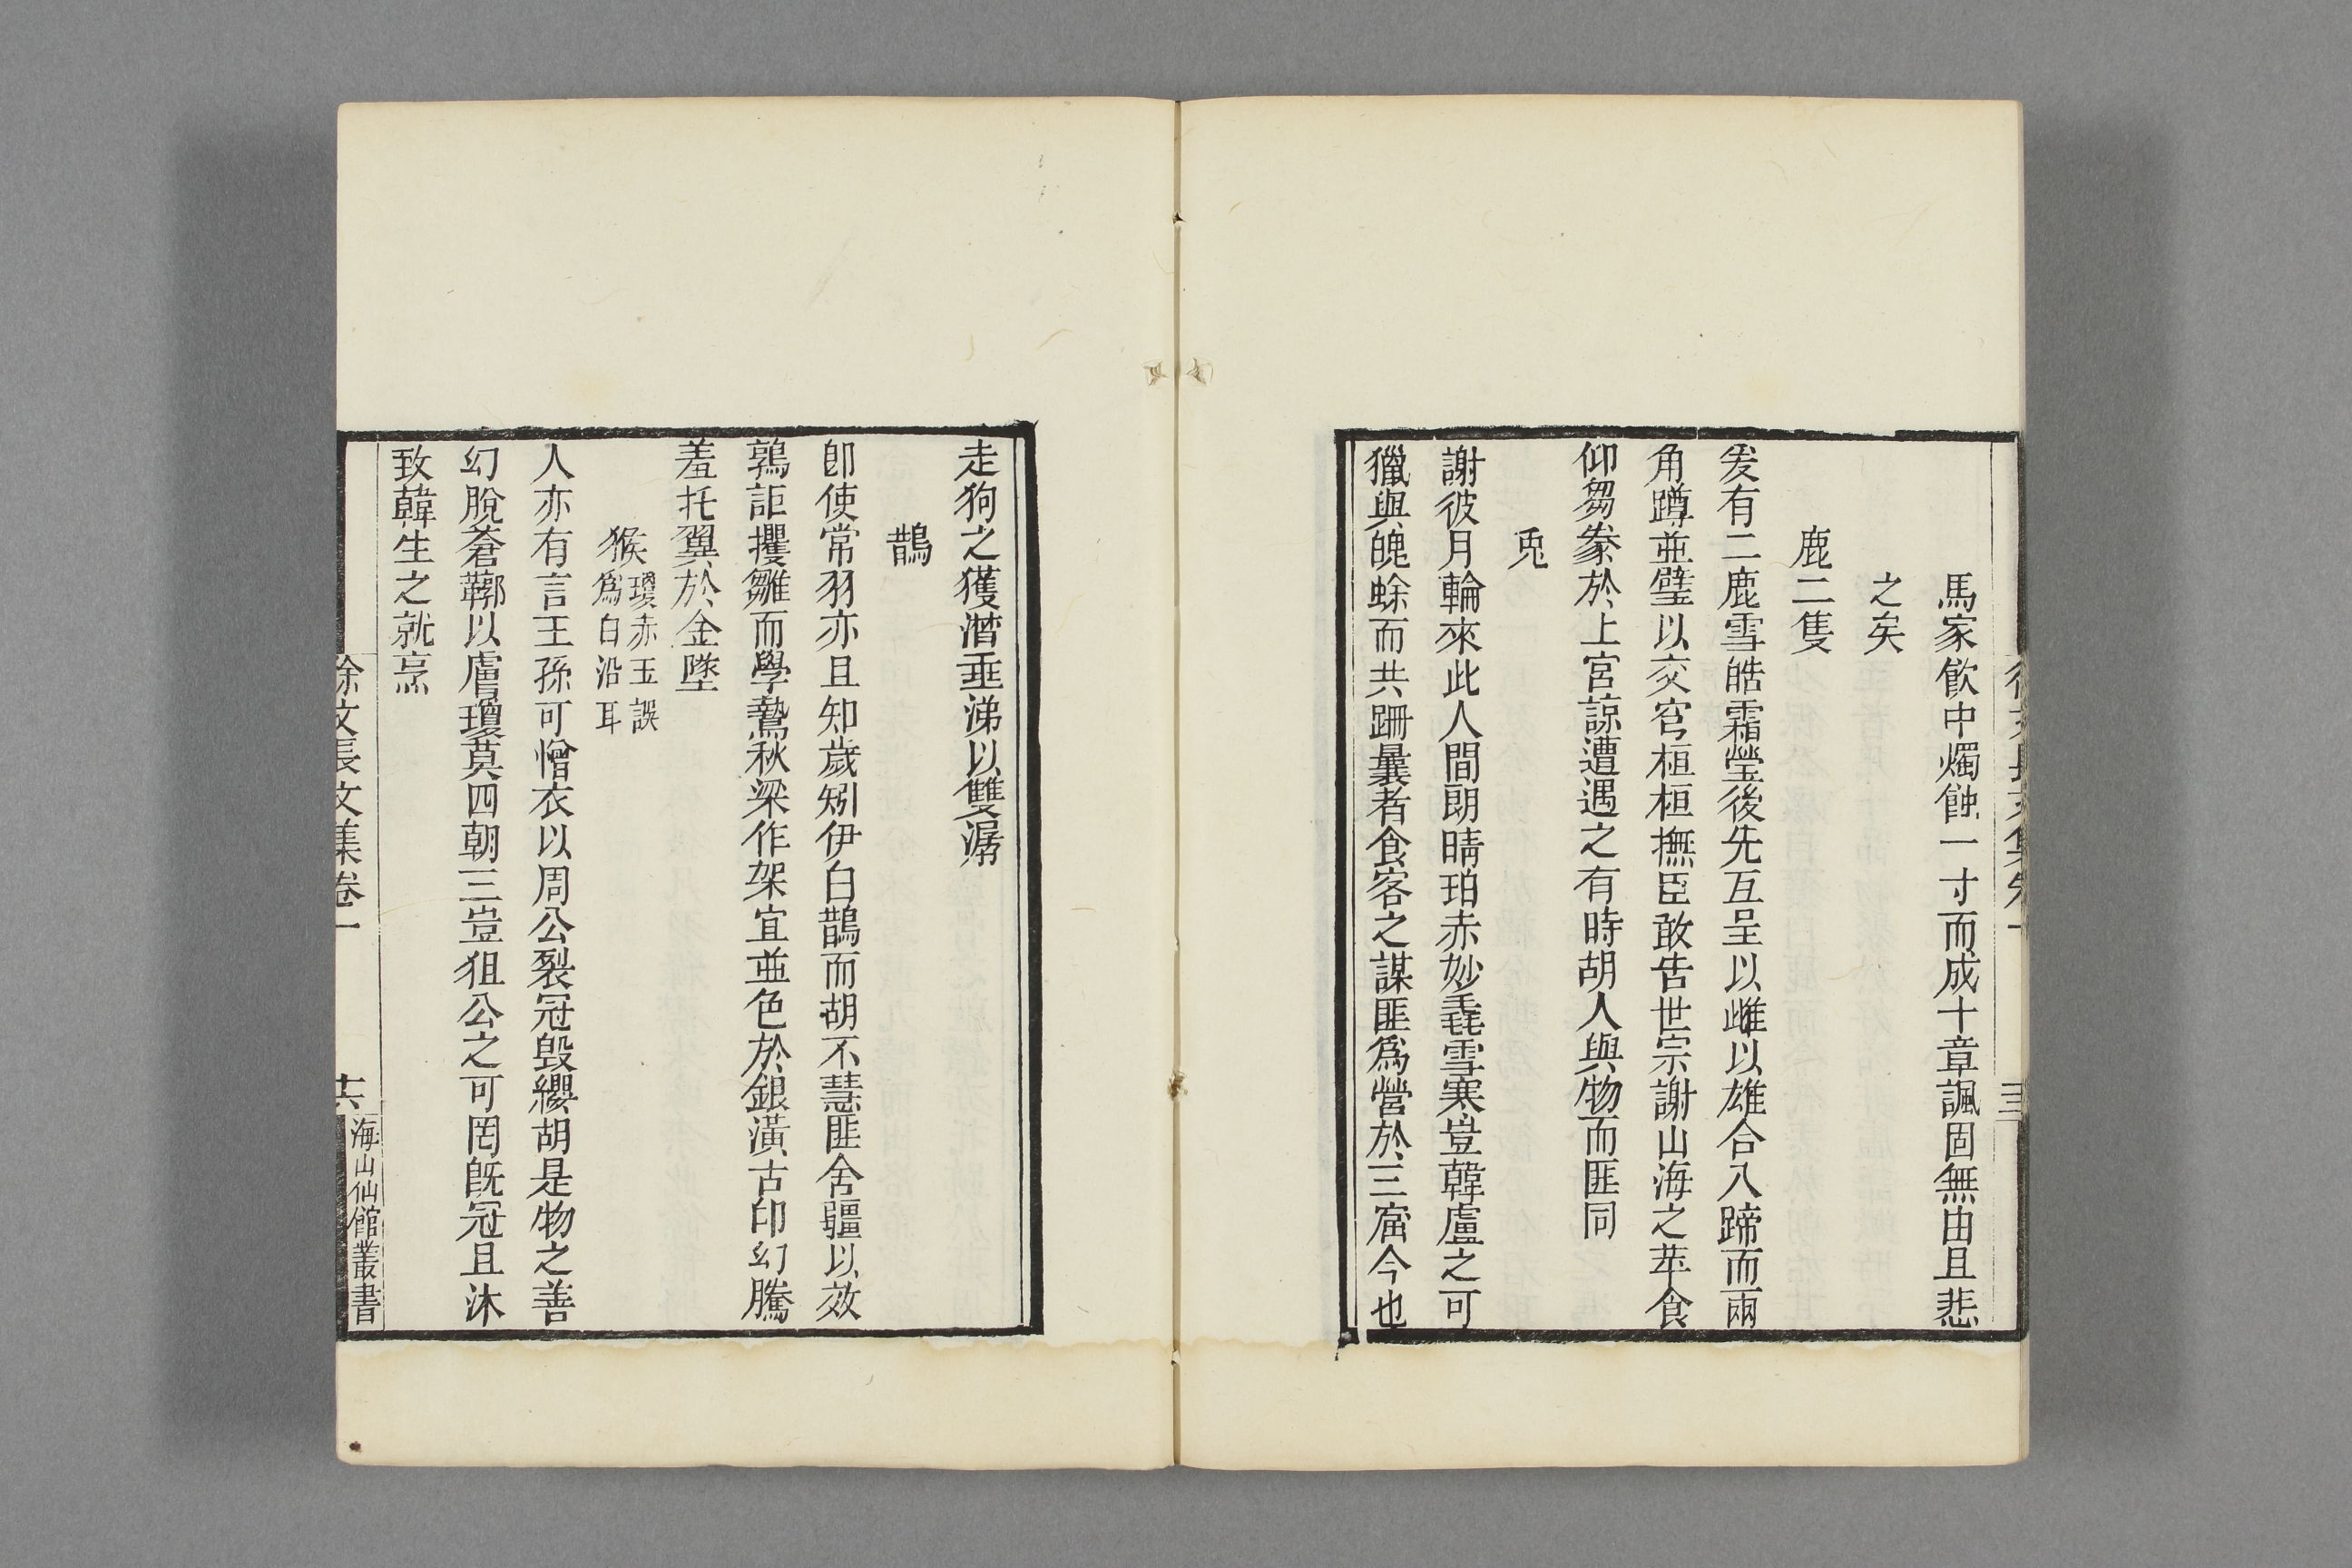 馬家飮中燭蝕一寸而成十章諷固無由且悲
之矣
鹿二隻
爰有二鹿雪皓霜瑩後先互呈以雌以雄合八蹄而兩
角蹲並璧以交穹桓桓撫臣敢告世宗謝山海之苹食
仰芻豢於上宮諒遭遇之有時胡人與物而匪同
兎
謝彼月輪來此人間朗晴珀赤妙毳雪寒豈韓盧之可
獵與魄蜍而共跚曩者食客之謀匪爲營於三窟今也
走狗之獲潸垂涕以雙潺
鵲
卽使常羽亦且知歲矧伊白鵲而胡不慧匪舍疆以效
鶉詎攫雛而學鷙秋梁作架宜並色於銀潢古印幻騰
羞托翼於金墜
猴瓊赤玉誤
爲白沿耳
人亦有言王孫可憎衣以周公裂冠毁纓胡是物之善
幻脫蒼鞹以膚瓊莫四朝三豈狙公之可罔旣冠且沐
致韓生之就烹
徐文長文集卷一
十六
海山仙館叢書